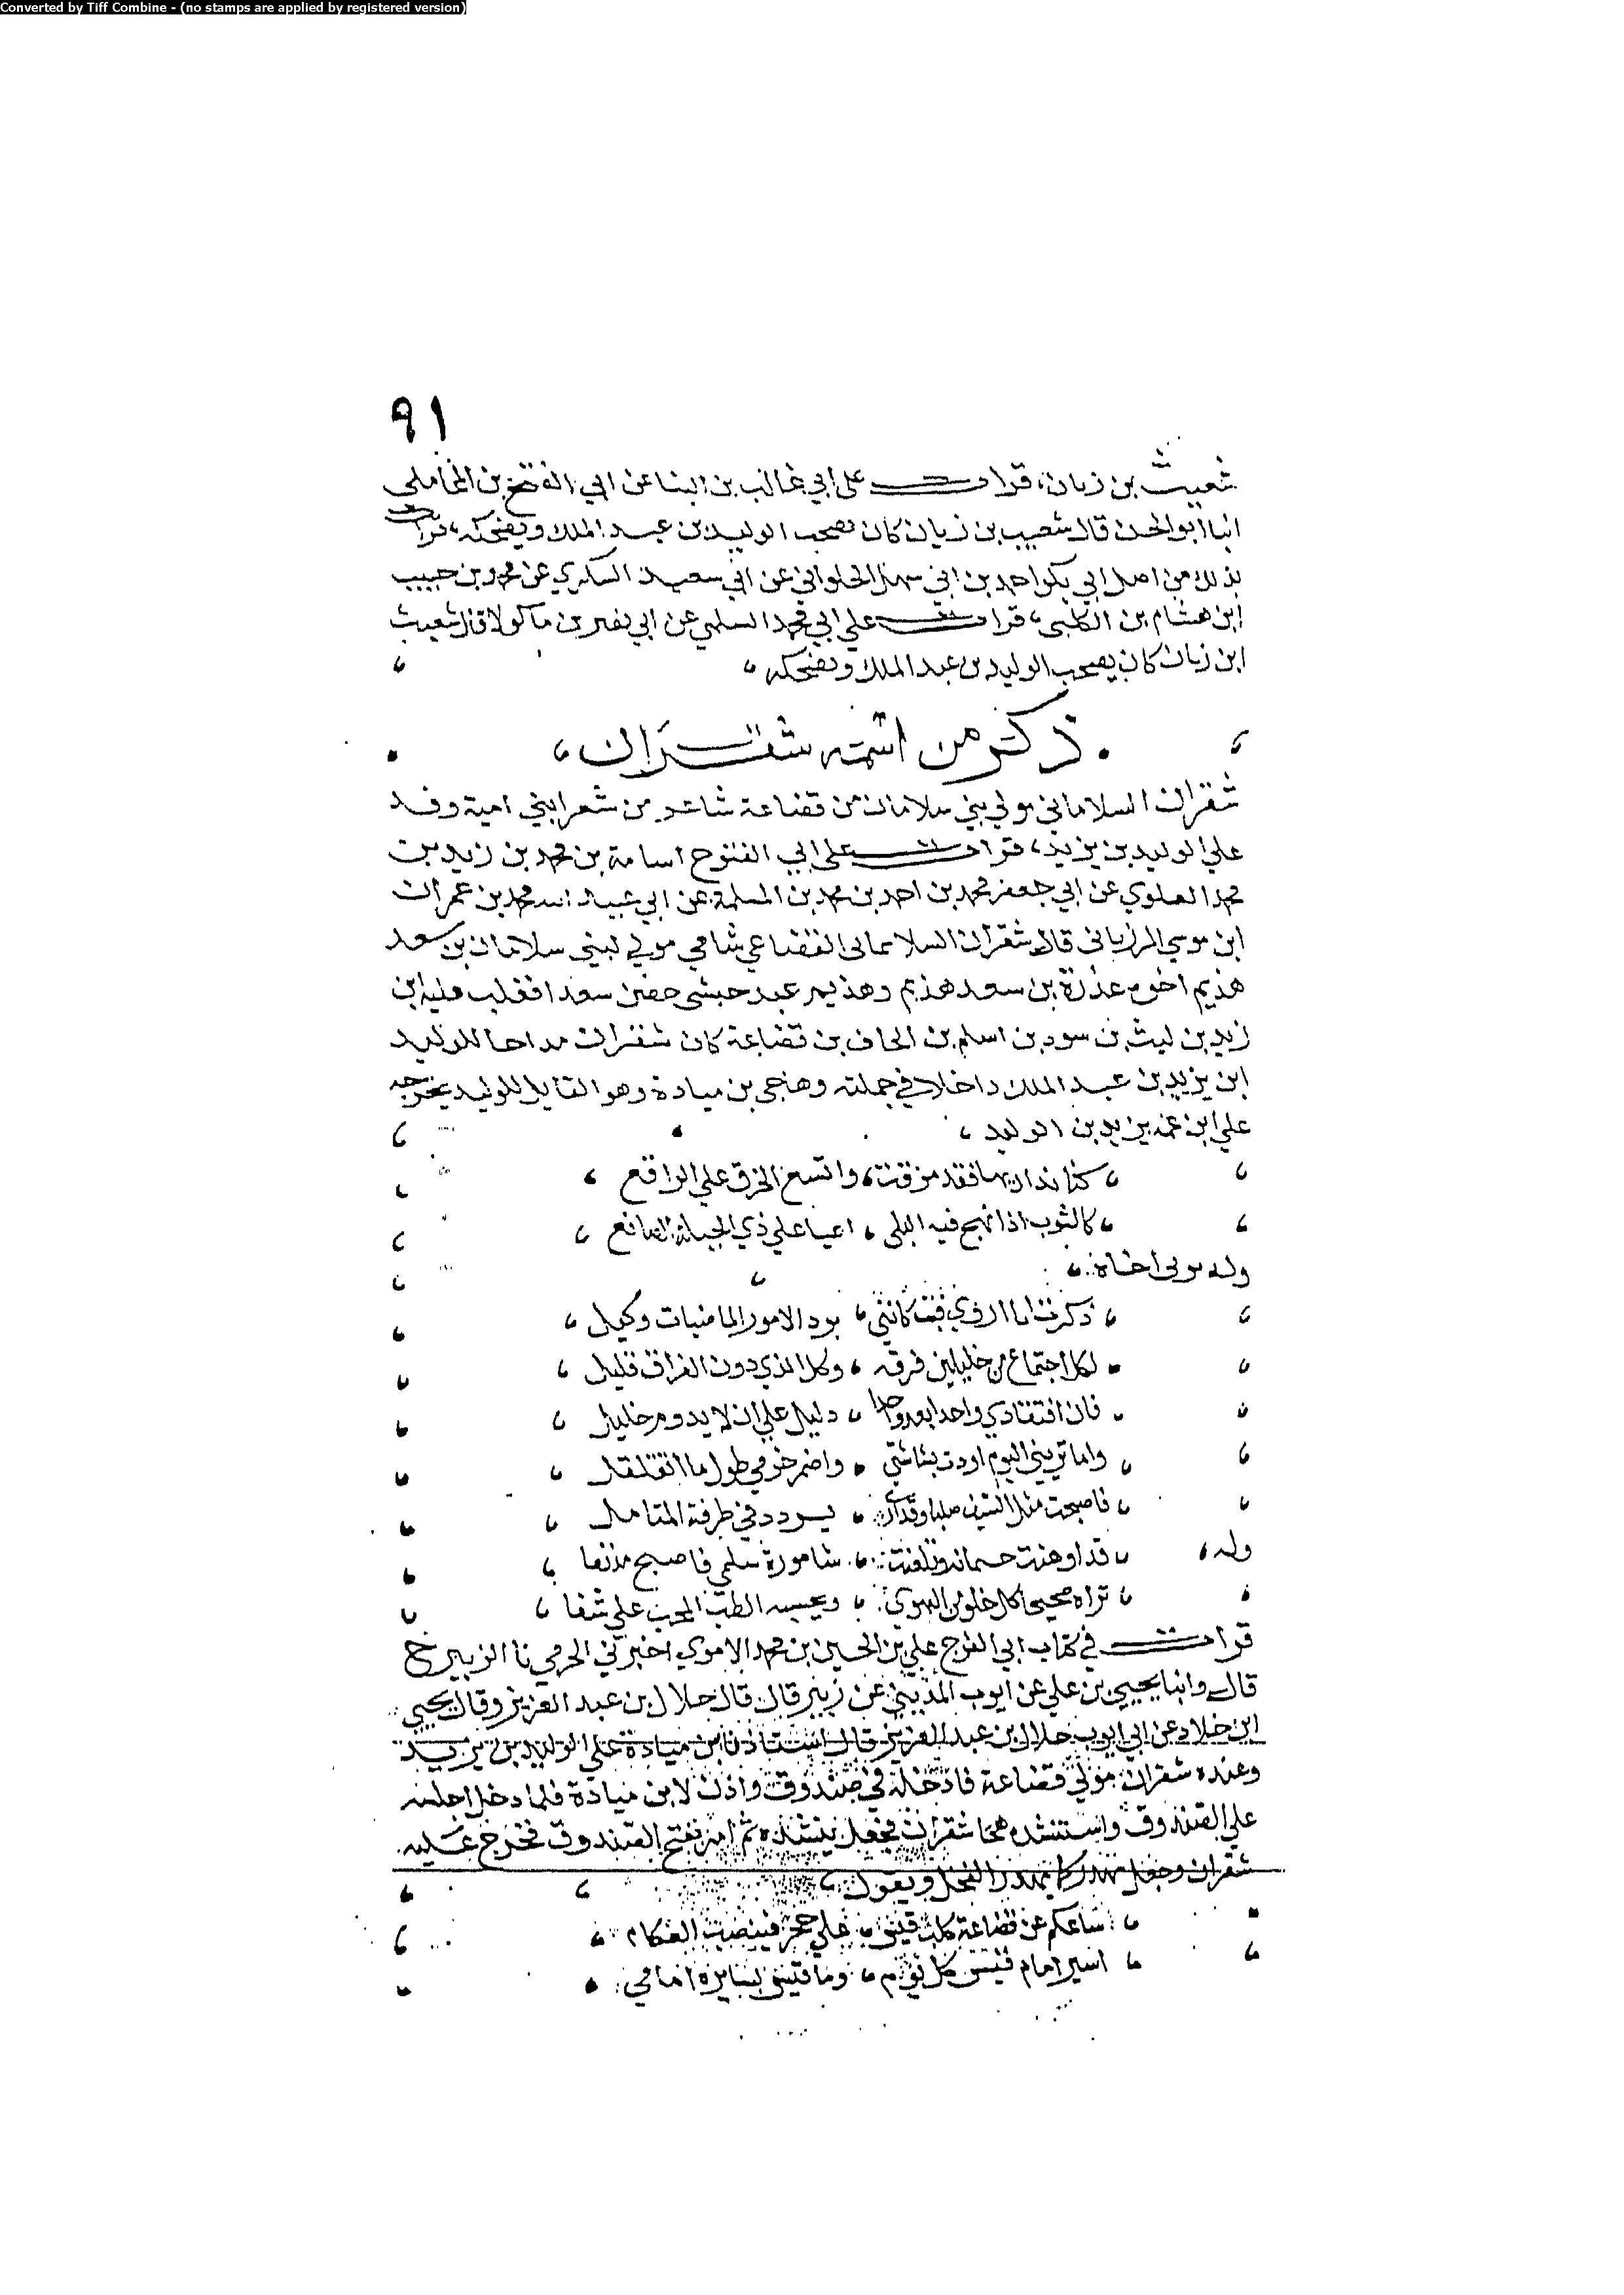 Converted by Tiff Combine - (no stamps are applied by registered version)
٩١
شعيث بن زبان، قرات على ابي غالب بن البنا عن ابي الفتح بن المحاملي
انبا ابو الحسن قال شعيب بن زبان كان يصحب الوليد بن عبد الملك ويضحكه، قرات
بذلك من اصل ابي بكر احمد بن ابي سهل الحلواني عن ابي سعيد السكري عن محمد بن حبيب
ابن هشام بن الكلبي، قرات على ابي محمد السلمي عن ابي نصر بن ماكولا قال شعيث
ابن زبان كان يصحب الوليد بن عبد الملك ويضحكه
ذكر من اسمه شقران
شقران السلاماني مولي بني سلامان من قضاعة شاعر من شعرا بني امية وفد
علي الوليد بن يزيد، قرات على ابي الفتوح اسامة بن محمد بن زيد بن
محمد العلوي عن ابي جعفر محمد بن احمد بن محمد بن المسلمة عن ابي عبيد الله محمد بن عمران
ابن موسي المرزباني قال شقران السلاماني القضاعي شامي مولي لبني سلامان بن سعد
هذيم اخوة عذرة بن سعد هذيم وهذيم عبد حبشي حضن سعدا فغلب عليه ابن
زيد بن ليث بن سود بن اسلم بن الحاف بن قضاعة كان شقران مداحا للوليد
ابن يزيد بن عبد الملك داخلا في جملته وهاجي بن ميادة وهو القايل للوليد يحرضه
علي ابن عمه يزيد بن الوليد
كنا نداريها فقد مزقت، واتسع الخرق علي الراقع
كالثوب اذا انهج فيه البلي، اعيا علي ذي الحيلة الصانع
وله يرثي اخاه
ذكرت ابا اروي فبت كانني، برد الامور الماضيات وكيل
لكل اجتماع من خليلين فرقة، وكل الذي دون الفراق قليل
فان افتقادي واحدا بعد واحد، دليل علي ان لا يدوم خليل
واما تريني اليوم اودت بشاشتي، واضمر طول ما اتقلقل
فاصبحت مثل السيف، يردد في طرفة المتامل
وله، قد اوهنت جسمانه وتلفت، سلمي فاصبح مدنفا
تراه صحيحا كل خلو من الهوي، ويحسبه الطب المجرب علي شفا
قرات في كتاب ابي الفرج علي بن الحسين بن محمد الاموي اخبرني الحرمي نا الزبير ح
قال وانبا يحيي بن علي عن ايوب المديني عن زبير قال قال جلال بن عبد العزيز وقال يحيي
ابن خلاد عن ابي ايوب جلال بن عبد العزيز قال استاذن ابن ميادة علي الوليد بن يزيد
وعنده شقران مولي قضاعة فادخله في صندوق واذن لابن ميادة فلما دخل اجلسه
علي الصندوق واستنشده هجا شقران فجعل ينشده ثم امر بفتح الصندوق فخرج عليه
شقران وجعل يهدر كما يهدر الفحل ويقول
ساكعم عن قضاعة كلب قيس، علي حجر فينصت للعكام
اسير امام قيس كل يوم، وما قيس بسايرة امامي